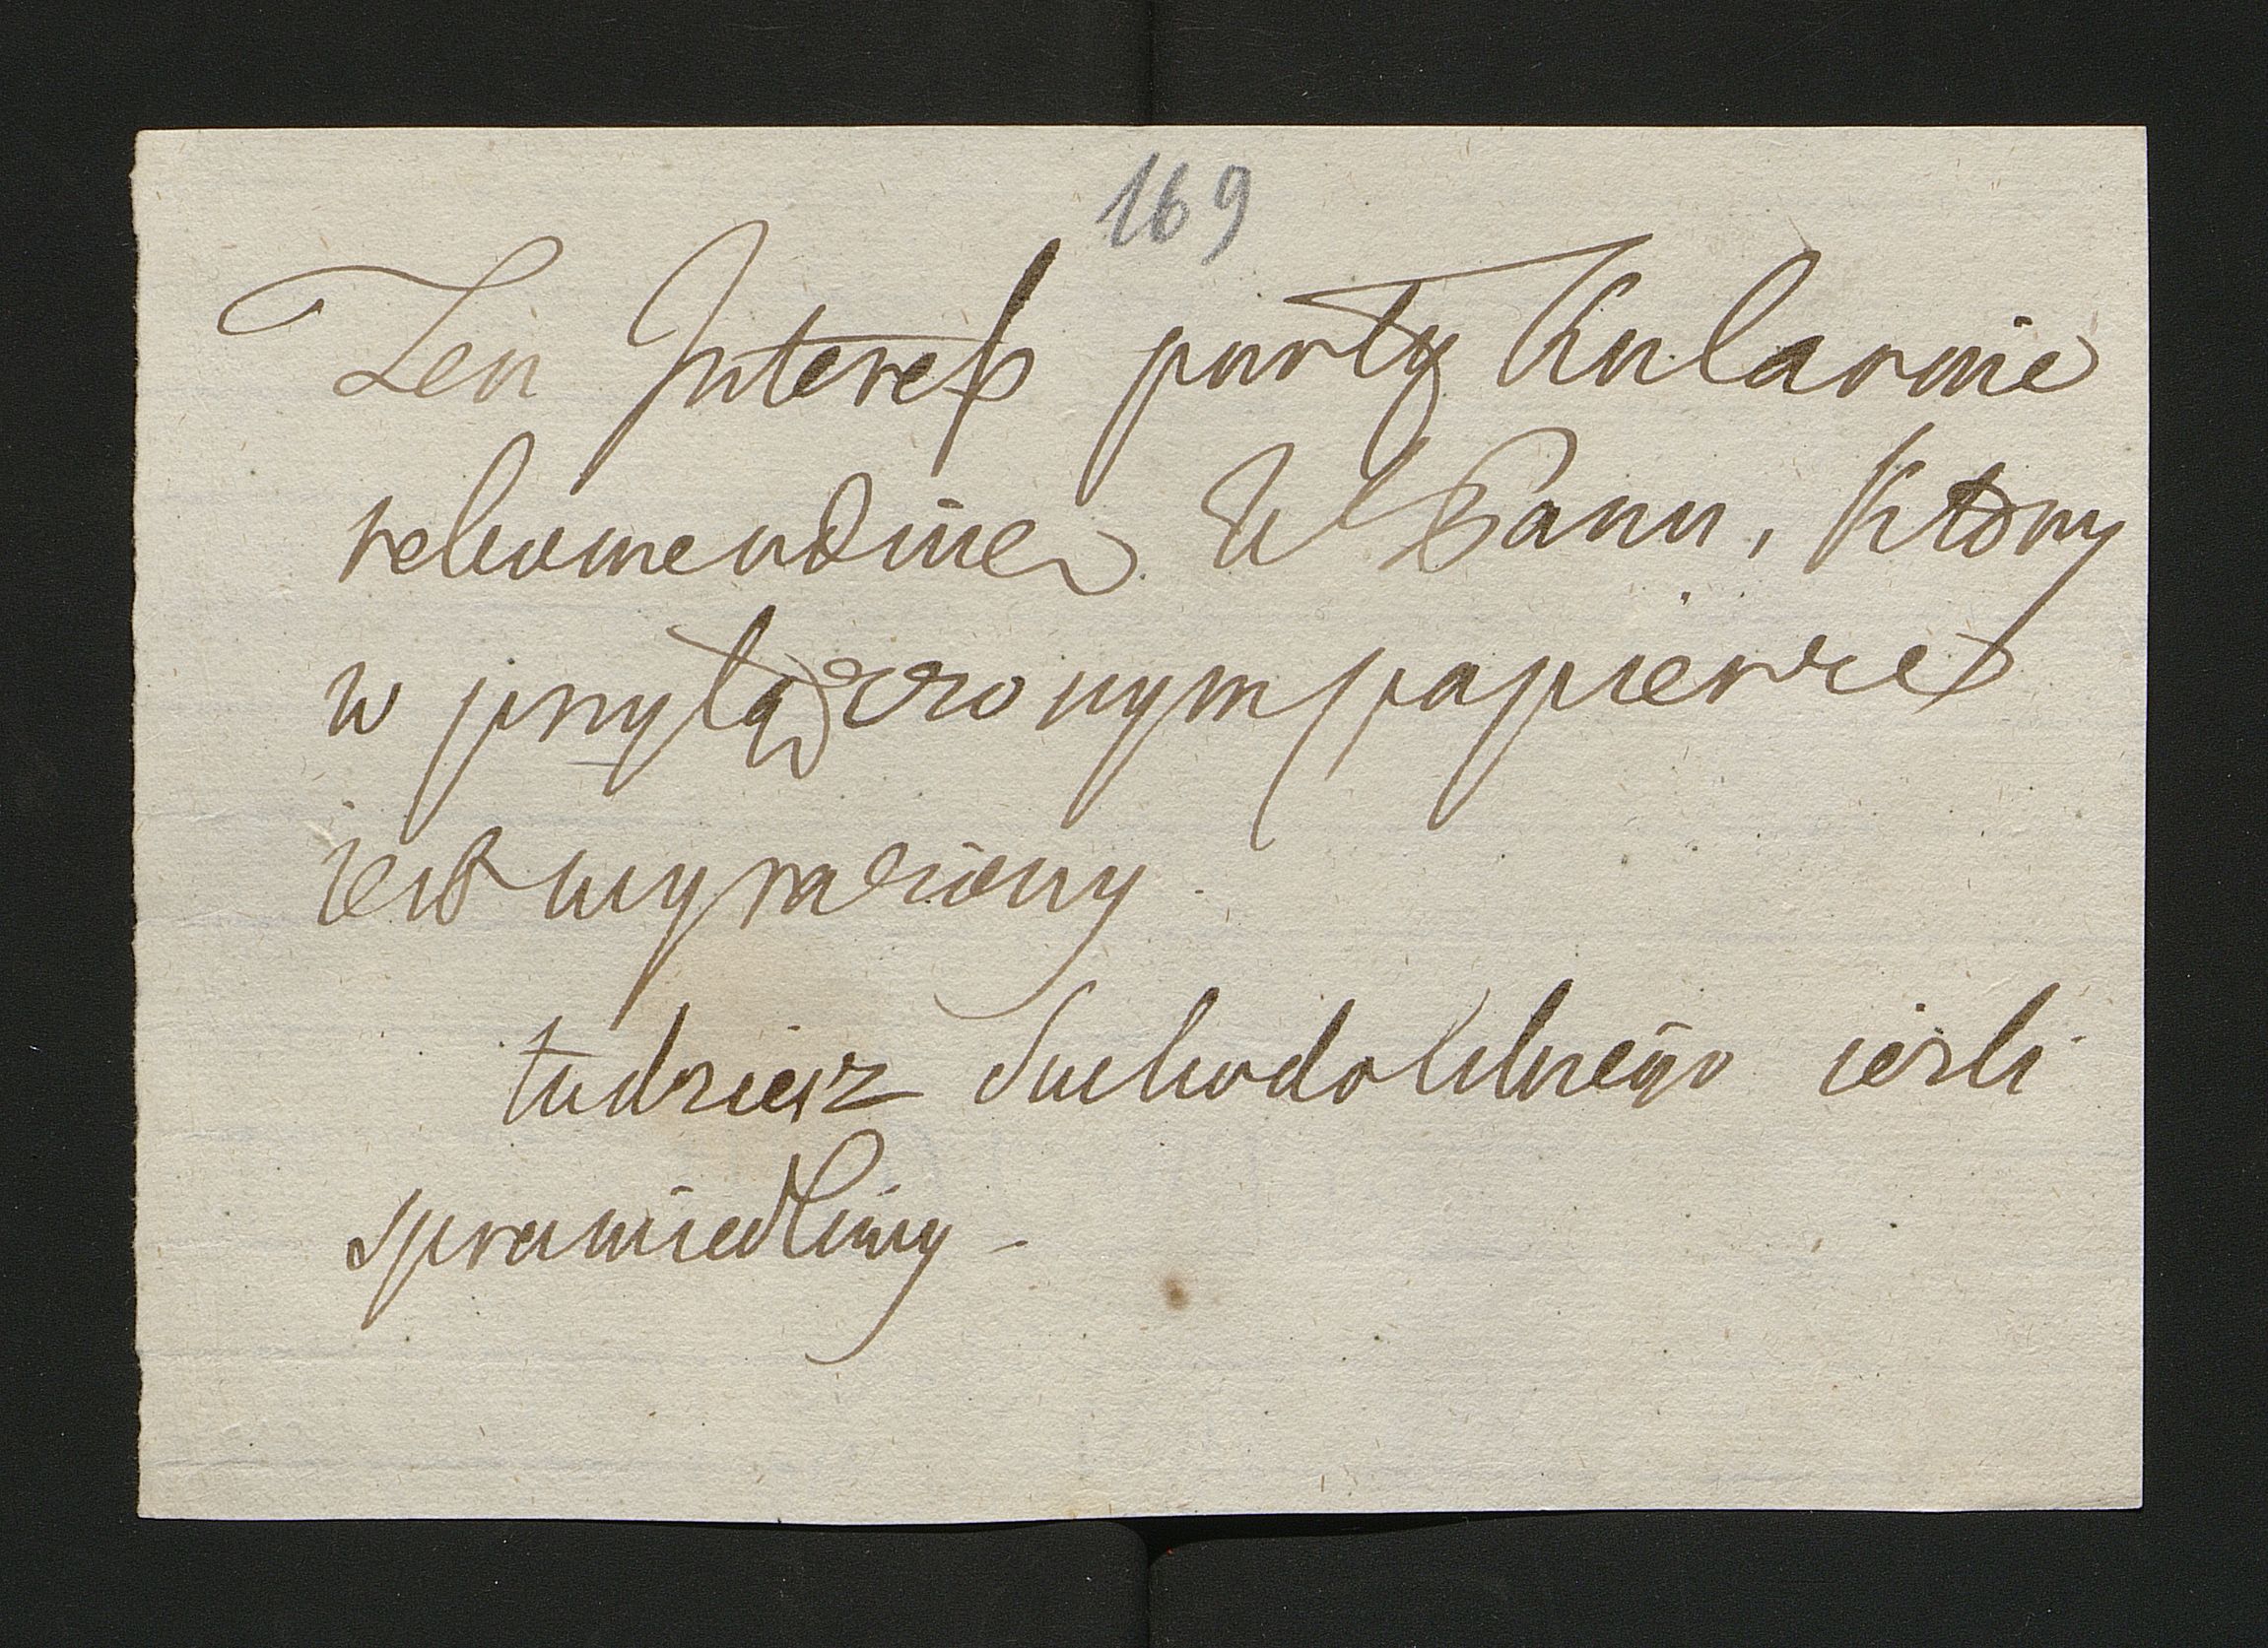 169
Ten Interess partykularnie
rekomenduie W Panu, który
w przyłączonym papierze
iest wyrażony
tudziesz Suchodolskiego ieśli
sprawiedliwy -